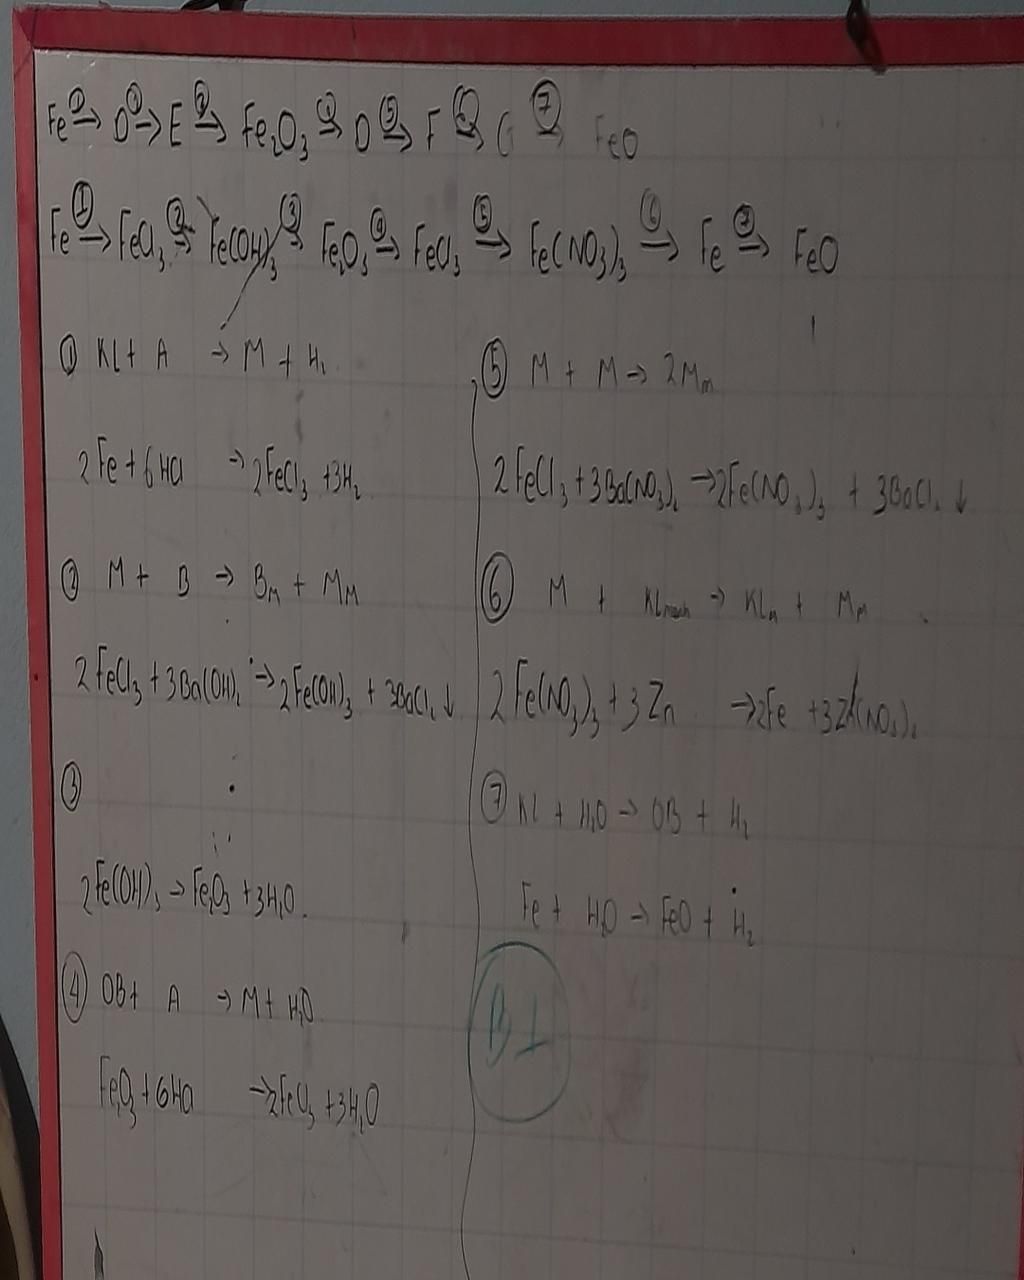 Fe ①→ D ①→ E ②→ Fe₂O₃ ④→ D ⑤→ F ⑥→ G ⑦→ FeO
Fe ①→ FeCl₃ ②→ Fe(OH)₃ ③→ Fe₂O₃ ④→ FeCl₃ ⑤→ Fe(NO₃)₃ ⑥→ Fe ⑦→ FeO
① KL + A → M + H₂
2Fe + 6HCl → 2FeCl₃ + 3H₂
② M + B → Bₘ + Mₘ
2FeCl₃ + 3Ba(OH)₂ → 2Fe(OH)₃ + 3BaCl₂ ↓
③
2Fe(OH)₃ → Fe₂O₃ + 3H₂O
④ OB + A → M + H₂O
Fe₂O₃ + 6HCl → 2FeCl₃ + 3H₂O
⑤ M + M → 2Mₘ
2FeCl₃ + 3Ba(NO₃)₂ → 2Fe(NO₃)₃ + 3BaCl₂ ↓
⑥ M + KLmạnh → KLₘ + Mₘ
2Fe(NO₃)₃ + 3Zn → 2Fe + 3Zn(NO₃)₂
⑦ KL + H₂O → OB + H₂
Fe + H₂O → FeO + H₂
B1